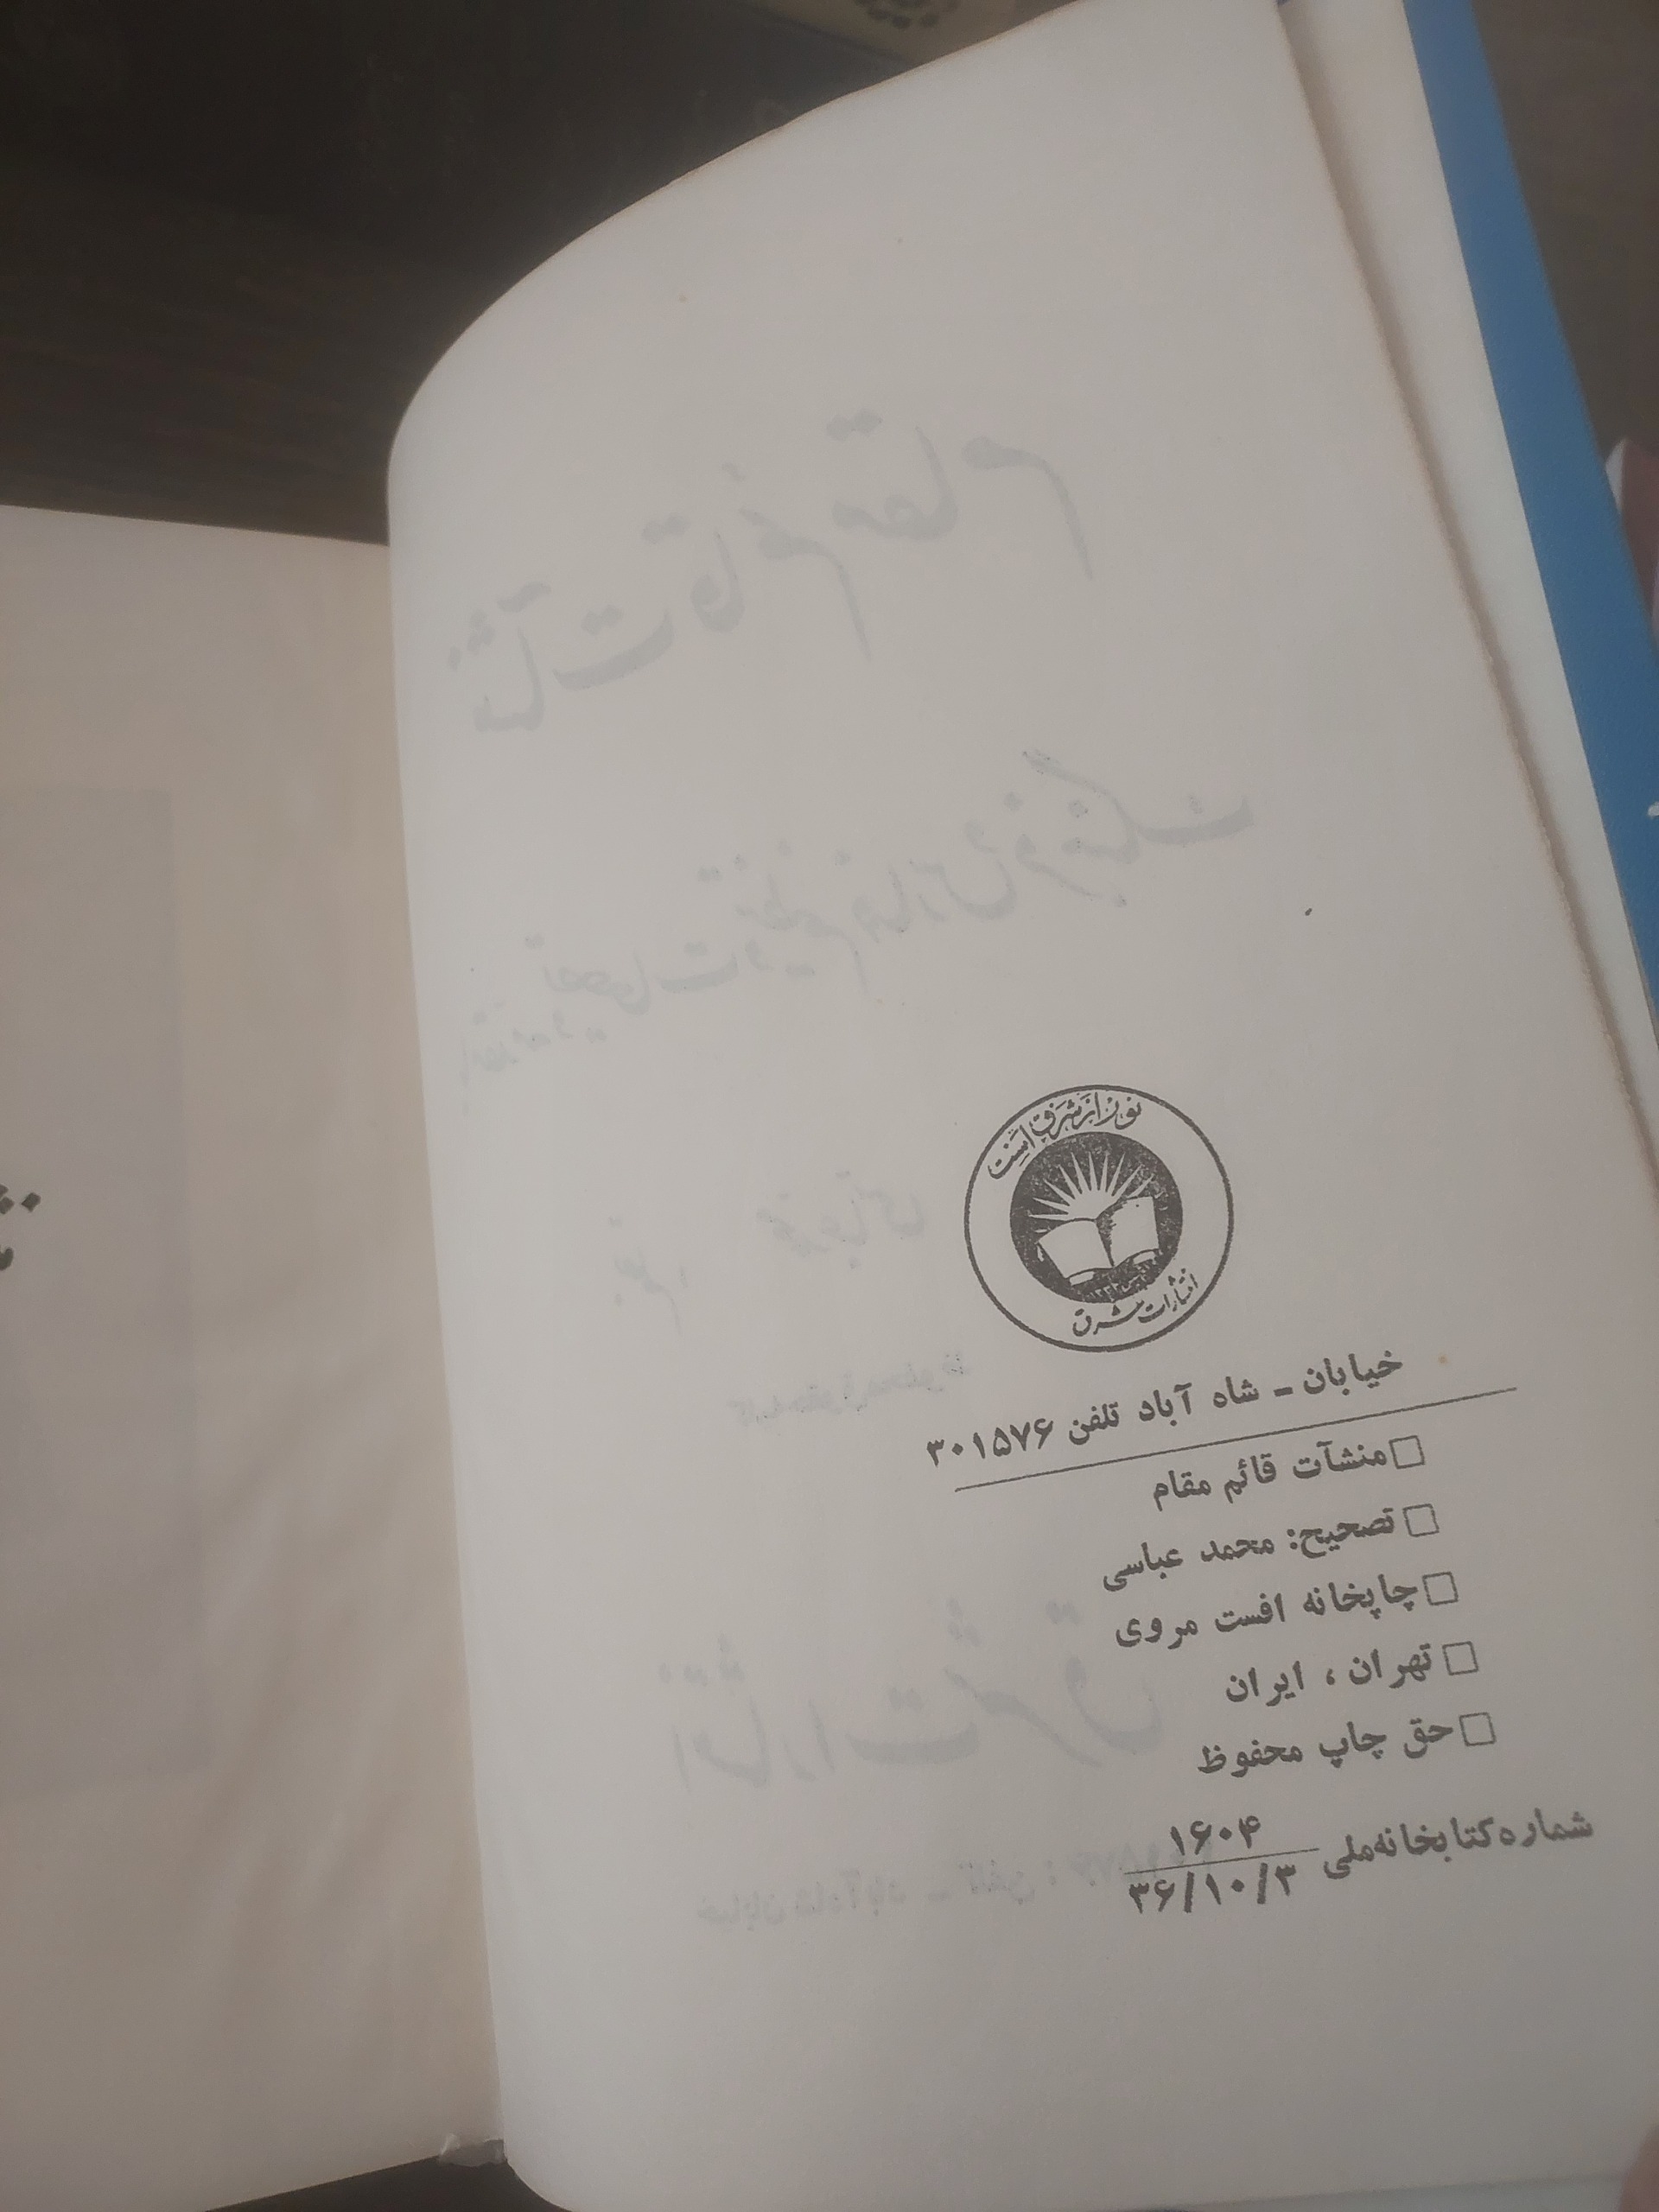 نور از شرق است
انتشارات شرق
خیابان ـ شاه آباد تلفن ۳۰۱۵۷۶
□ منشآت قائم مقام
□ تصحیح: محمد عباسی
□ چاپخانه افست مروی
□ تهران ، ایران
□ حق چاپ محفوظ
شماره کتابخانه ملی ۱۶۰۴
۳۶/۱۰/۳